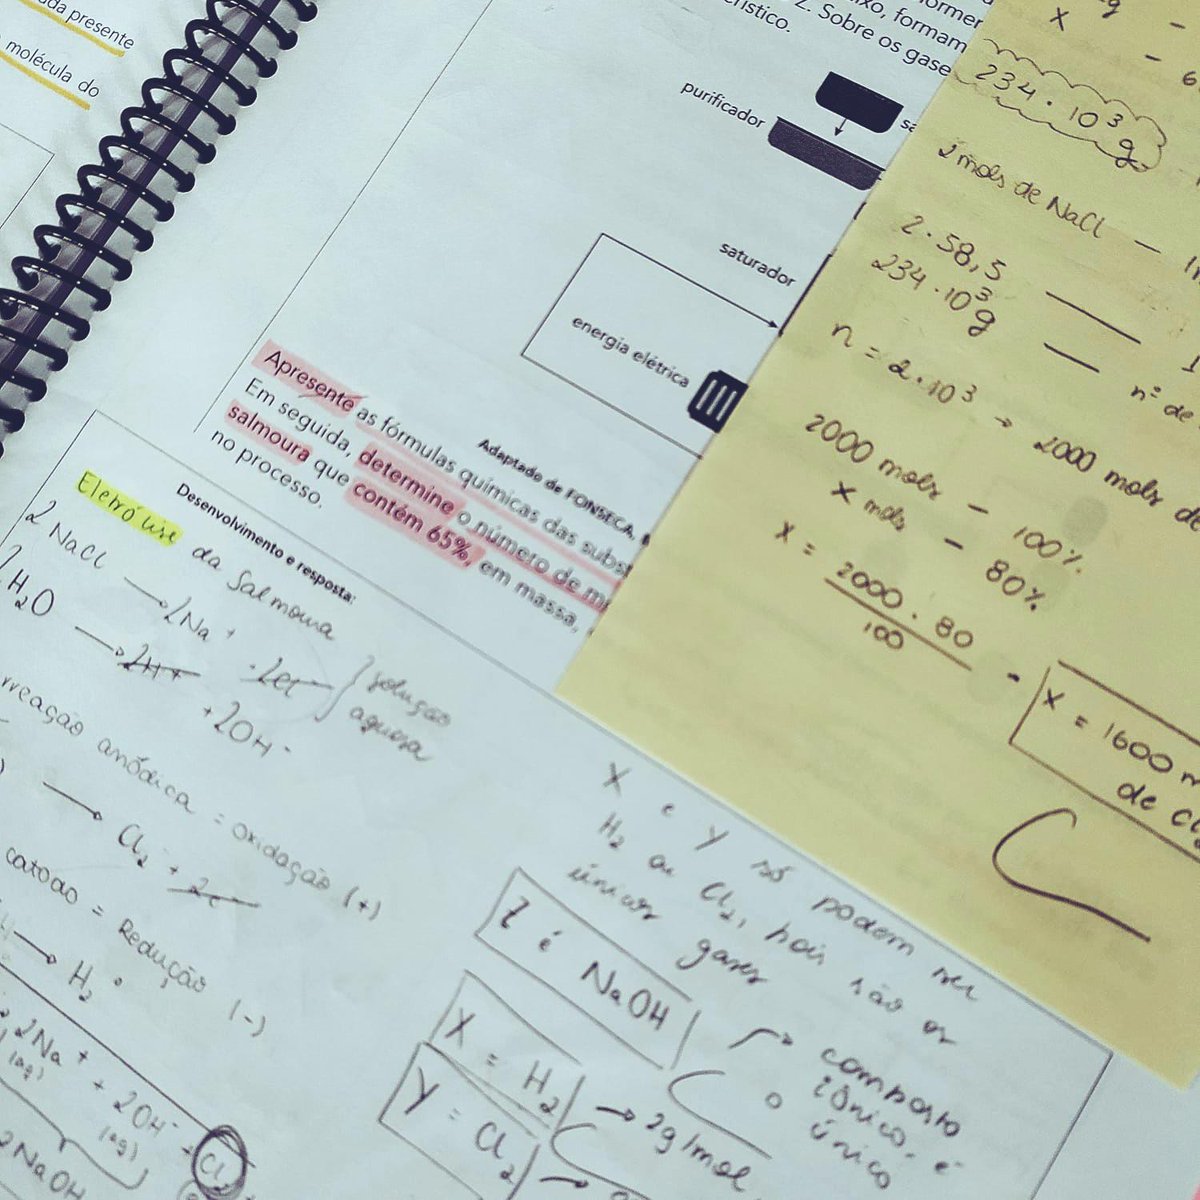 presente
molécula do
formam
rístico.
Z. Sobre os gase
purificador
saturador
energia elétrica
Adaptado de FONSECA,
Apresente as fórmulas químicas das subs
Em seguida, determine o número de m
salmoura que contém 65%, em massa,
no processo.
Desenvolvimento e resposta:
Eletrólise da Salmoura
2 NaCl → 2Na+
H2O → 2H+ + 2OH-
solução
aquosa
anódica = oxidação (+)
→ Cl2 + 2e-
catodo = Redução (-)
→ H2
2Na+ + 2OH-
(aq)
(aq)
Cl2
2NaOH
X e Y só podem ser
H2 ou Cl2, pois são os
únicos gases
Z é NaOH
composto
iônico
é o
único
X = H2 → 2g/mol
Y = Cl2 →
X
234 · 10³ g
2 mols de NaCl —
2 · 58,5 —
234 · 10³ g — nº de
n = 2 · 10³ → 2000 mols de
2000 mols — 100%
x mols — 80%
x = 2000 · 80
100
x = 1600 m
de Cl2